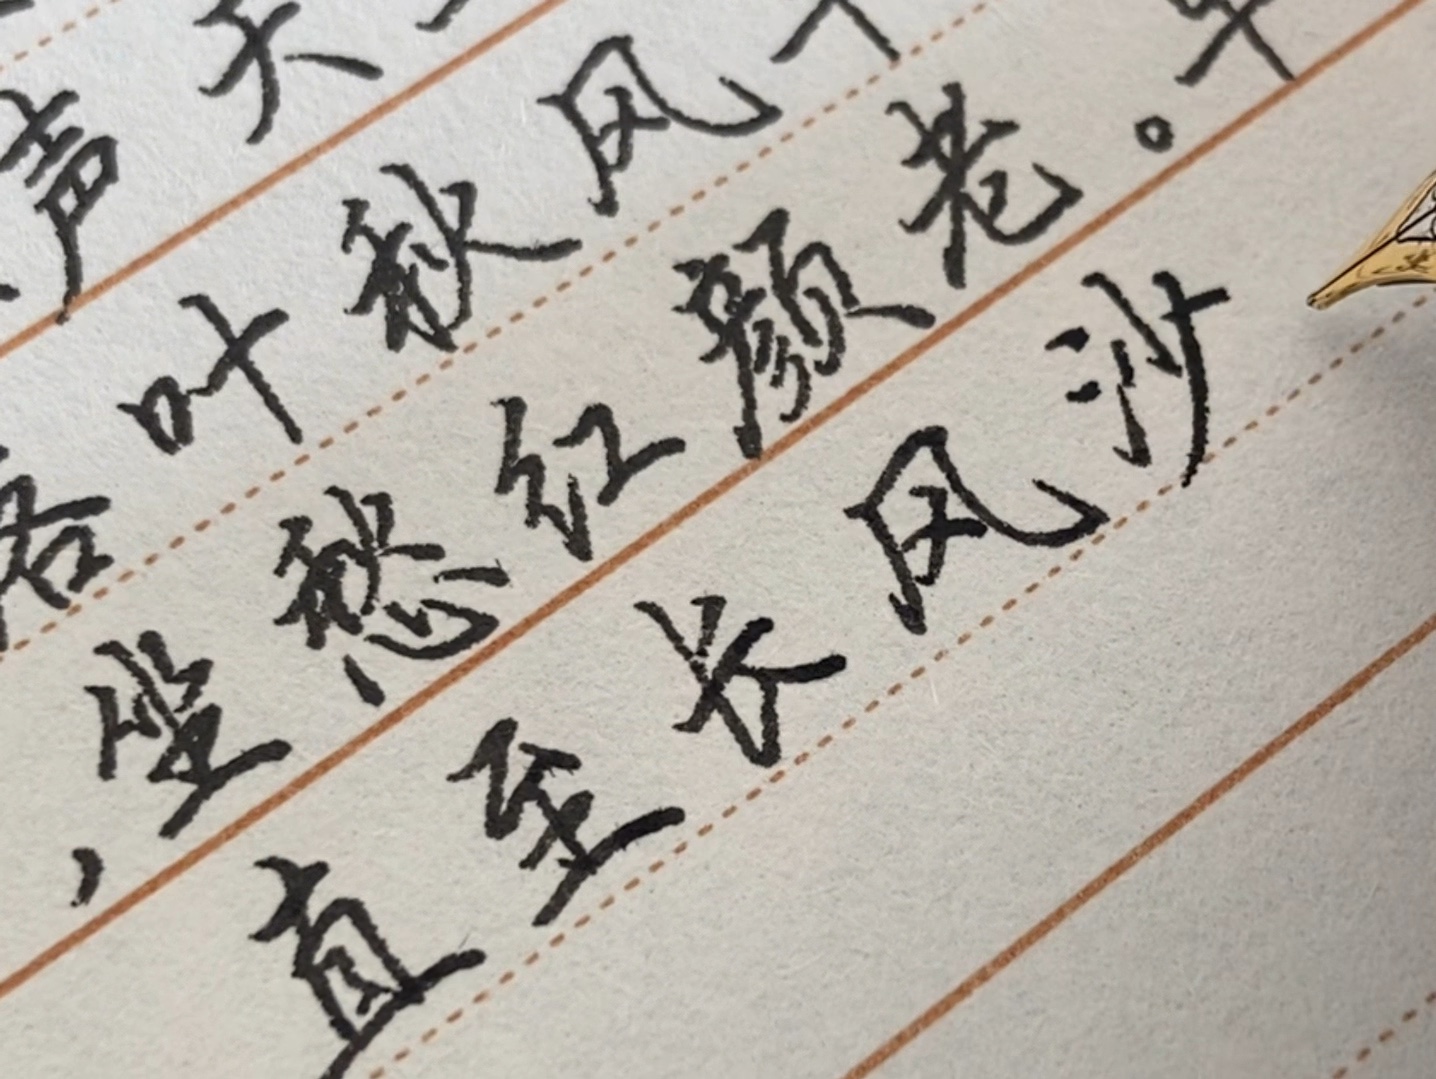 声天
叶秋风
，坐愁红颜老。
直至长风沙